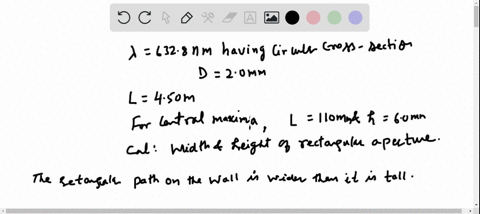 λ = 632.8 nm having Circular Cross-section
D = 2.0mm
L = 4.50m
For Central maxima, L = 110mm & h = 6.0mm
Cal: width & height of rectangular aperture.
The rectangular path on the wall is wider than it is tall.